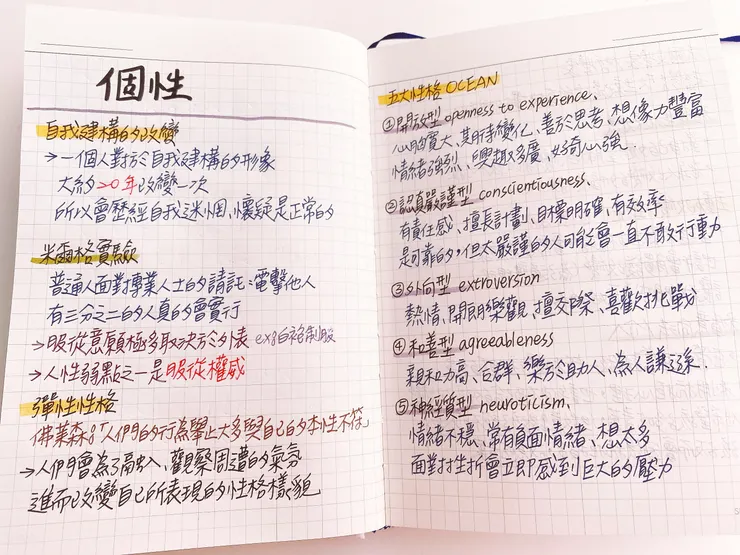 個性
自我建構的改變
→一個人對於自我建構的形象
大約20年改變一次
所以會歷經自我迷惘、懷疑是正常的
米爾格實驗
普通人面對專業人士的請託：電擊他人
有三分之二的人真的會實行
→服從意願極多取決於外表 ex:白袍制服
→人性弱點之一是服從權威
彈性性格
佛萊森:「人們的行為舉止大多與自己的本性不符」
→人們會為了融入、觀察周遭的氣氛
進而改變自己所表現的性格樣貌
五大性格 OCEAN
①開放型 openness to experience、
心胸寬大、期待變化、善於思考、想像力豐富
情緒強烈、興趣多廣、好奇心強.
②認真嚴謹型 conscientiousness、
有責任感、擅長計劃、目標明確、有效率
是可靠的，但太嚴謹的人可能會一直不敢行動
③外向型 extroversion
熱情、開朗樂觀、擅交際、喜歡挑戰
④和善型 agreeableness
親和力高、合群、樂於助人、為人謙遜.
⑤神經質型 neuroticism、
情緒不穩、常有負面情緒、想太多
面對挫折會立即感到巨大的壓力